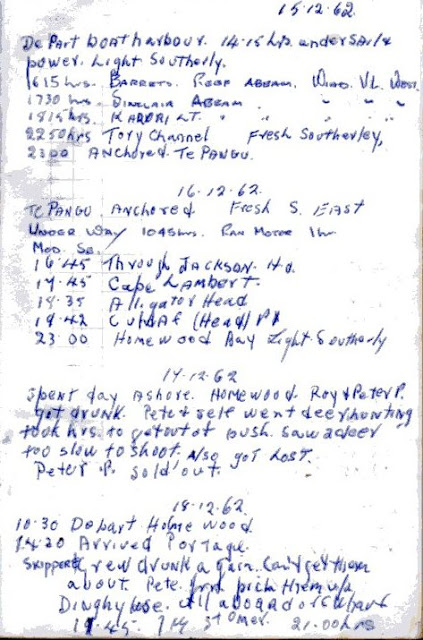 15.12.62.
Depart boat harbour. 14.15 hrs. under sail &
power. Light Southerly.
1615 hrs. Barrets. Reef abeam. Wind. VL. West.
1730 hrs. Sinclair Abeam " " "
1815 hrs. Karori LT. " " " "
2250 hrs Tory Channel Fresh Southerley,
2300 Anchored Te Pangu.
16.12.62.
Te Pangu. Anchored Fresh S. East
Under Way 1045 hrs. Ran Motor 1 hr
Mod. Se.
16.45 Through Jackson. Hd.
17.45 Cape Lambert.
18.35 Alligator Head
19.42 (Head) Pt
23 00 Homewood Bay Light Southerly
17.12.62
Spent day Ashore. Homewood. Roy & Peter P.
got drunk. Pete & self went deerhunting
took hrs. to get out of bush. Saw a deer
too slow to shoot. Also got Lost.
Peter P. sold out.
18.12.62.
10.30 Depart Home wood
14.20 Arrived Portage.
Skipper & crew drunk again. Can't get them
about. Pete. pick them up
Dinghy
19.45. 21.00 hrs